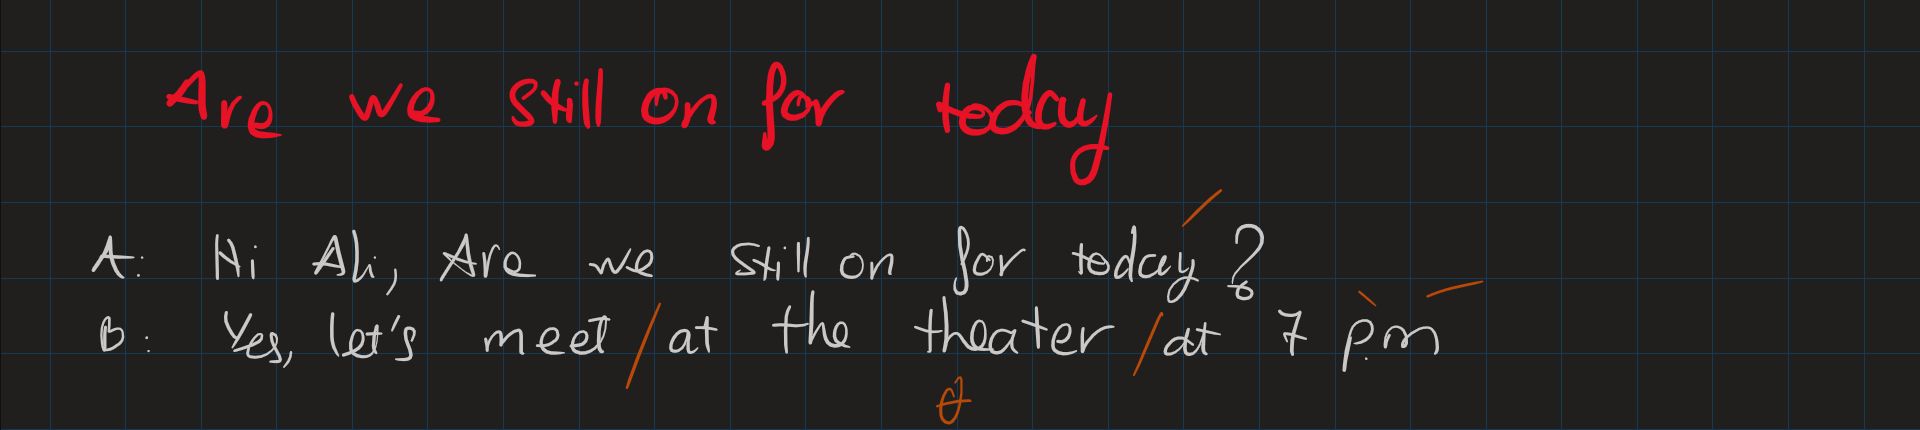 Are we still on for today
A: Hi Ali, Are we still on for today?
B: Yes, let's meet / at the theater / at 7 p.m
θ